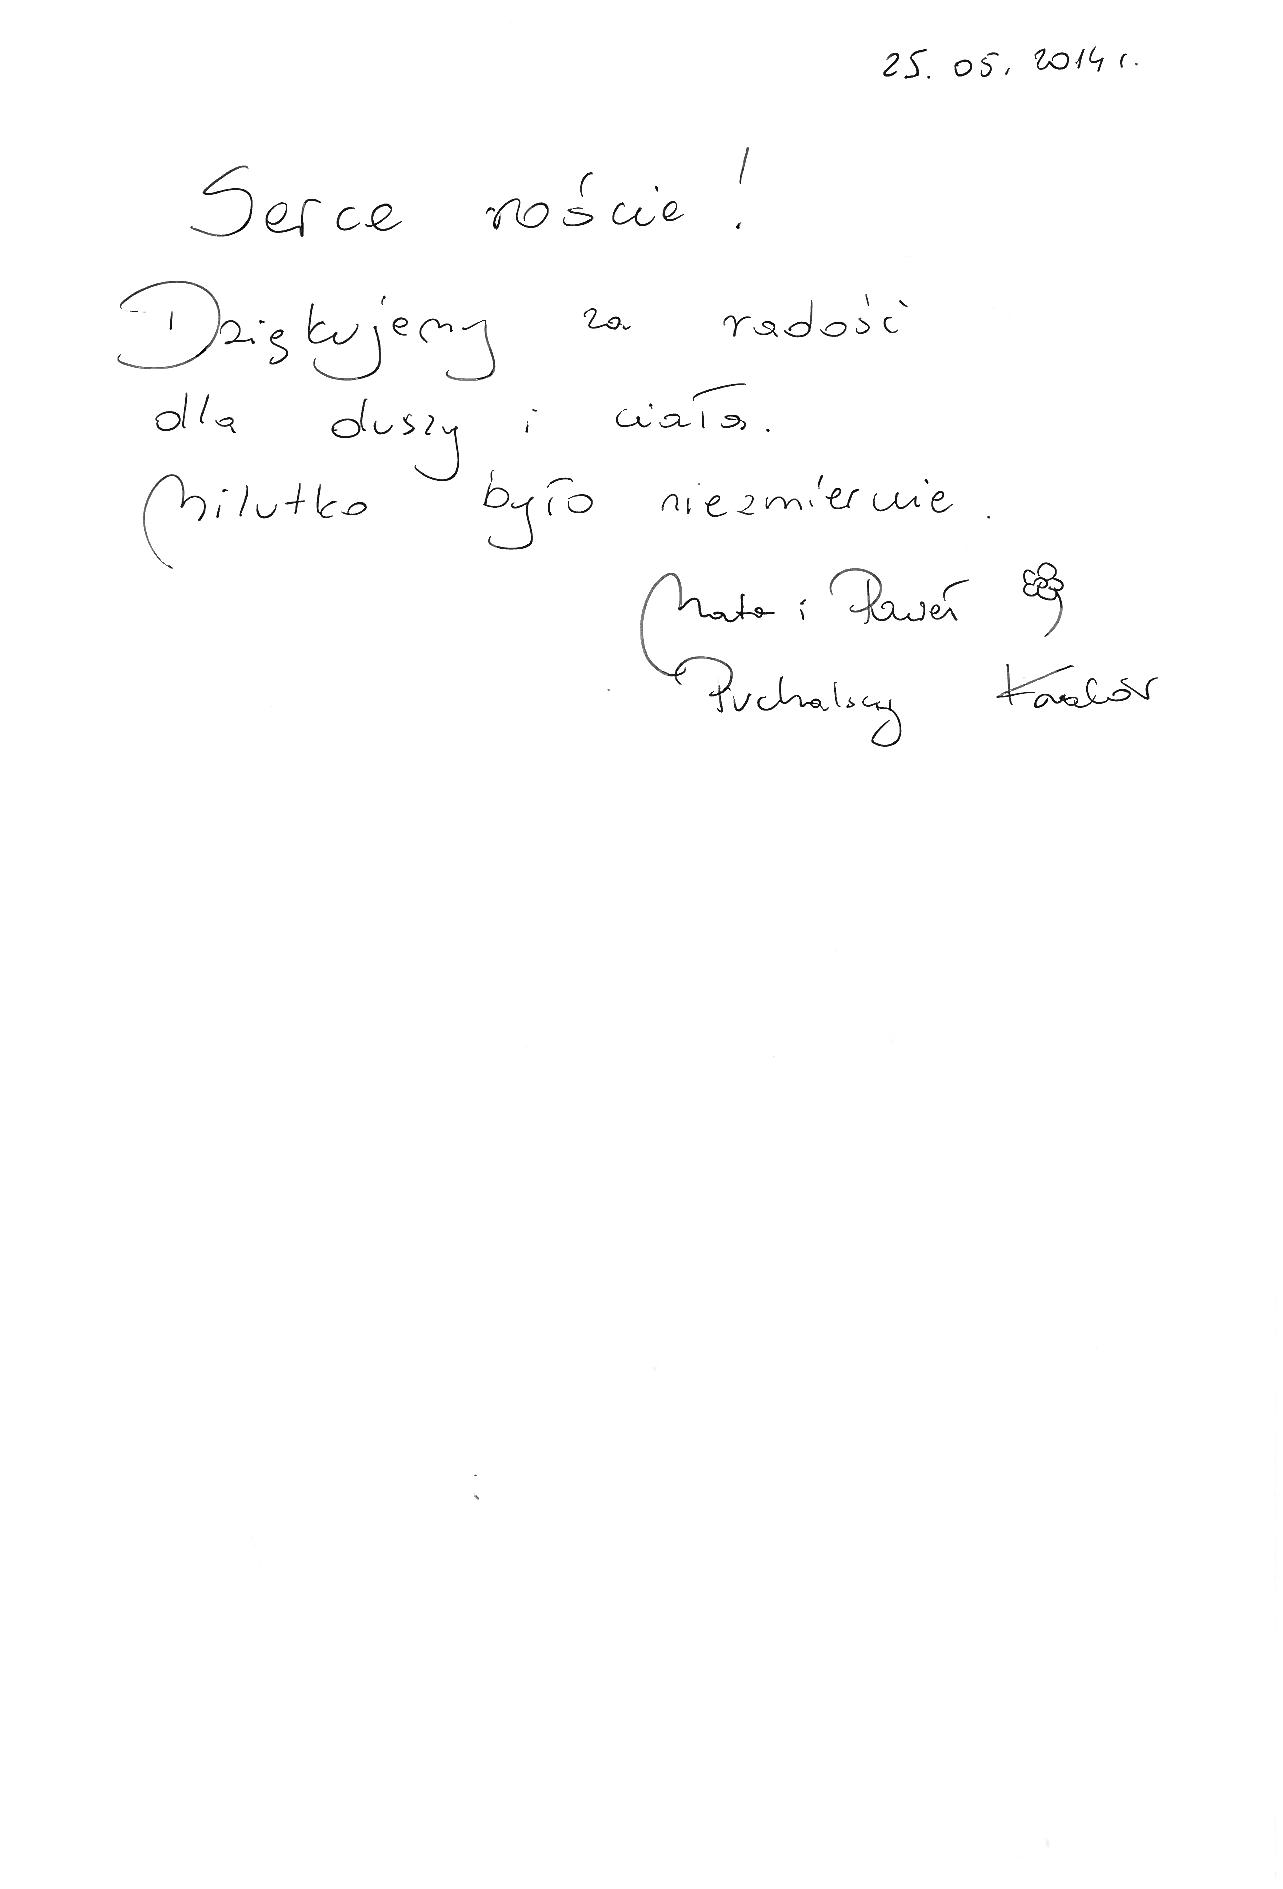 25. 05. 2014 r.
Serce rośnie!
Dziękujemy za radość
dla duszy i ciała.
Milutko było niezmiernie.
i Paweł
Puchalscy Kraków